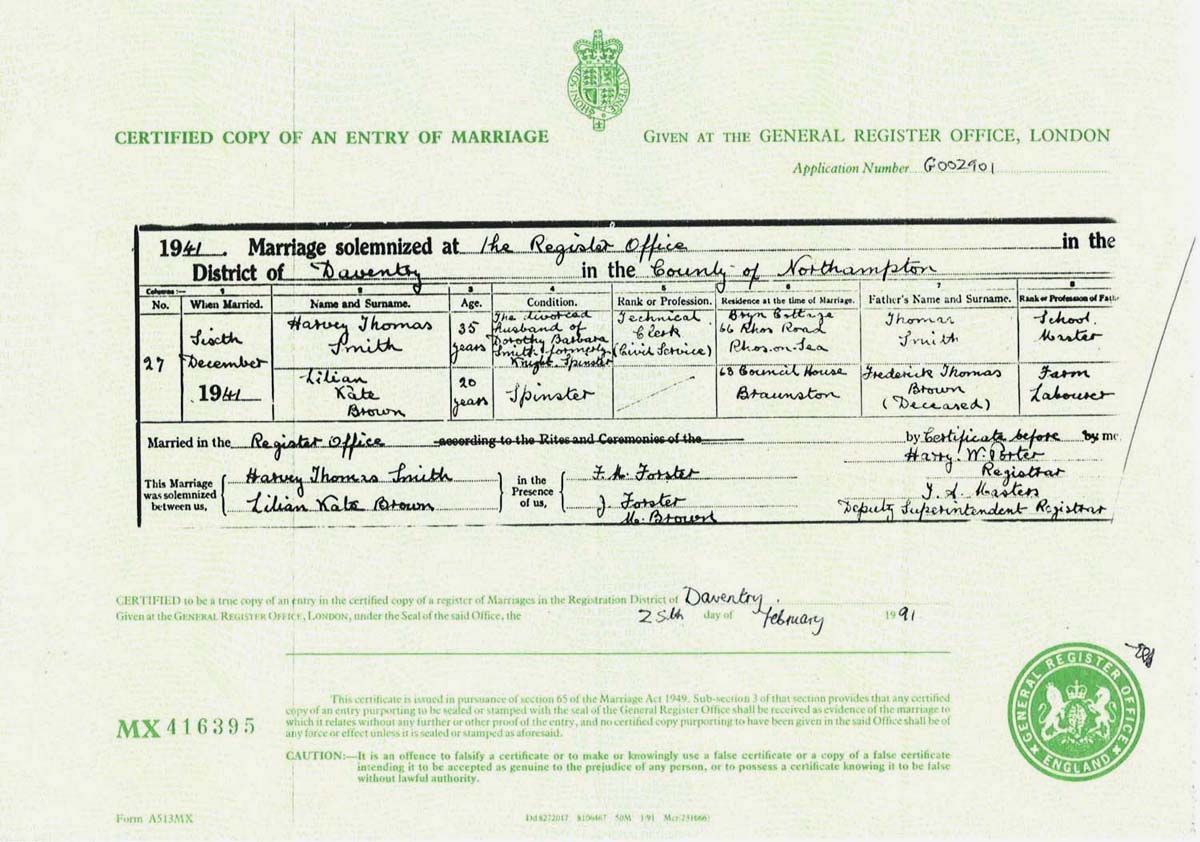 HONI SOIT QUI MAL Y PENSE
CERTIFIED COPY OF AN ENTRY OF MARRIAGE
GIVEN AT THE GENERAL REGISTER OFFICE, LONDON
Application Number G002901
1941. Marriage solemnized at The Register Office in the
District of Daventry in the County of Northampton
Columns:— 1 2 3 4 5 6 7 8
No. When Married. Name and Surname. Age. Condition. Rank or Profession. Residence at the time of Marriage. Father's Name and Surname. Rank or Profession of Fath
27
Sixth
December
1941
Harvey Thomas
Smith
35
years
The divorced
husband of
Dorothy Barbara
Smith formerly
Knight. Spinster
Technical
Clerk
(Civil Service)
Bryn Cottage
66 Rhos Road
Rhos-on-Sea
Thomas
Smith
School
Master
Lilian
Kate
Brown
20
years
Spinster
68 Council House
Braunston
Frederick Thomas
Brown
(Deceased)
Farm
Labourer
Married in the Register Office according to the Rites and Ceremonies of the by Certificate before by me,
Harry. W. Porter
Registrar
Masters
Deputy Superintendent Registrar
This Marriage
was solemnized
between us,
Harvey Thomas Smith
Lilian Kate Brown
in the
Presence
of us,
F. M. Forster
J. Forster
M. Brown
CERTIFIED to be a true copy of an entry in the certified copy of a register of Marriages in the Registration District of Daventry.
Given at the GENERAL REGISTER OFFICE, LONDON, under the Seal of the said Office, the 25th day of February 1991
This certificate is issued in pursuance of section 65 of the Marriage Act 1949. Sub-section 3 of that section provides that any certified
copy of an entry purporting to be sealed or stamped with the seal of the General Register Office shall be received as evidence of the marriage to
which it relates without any further or other proof of the entry, and no certified copy purporting to have been given in the said Office shall be of
any force or effect unless it is sealed or stamped as aforesaid.
MX 416395
CAUTION:—It is an offence to falsify a certificate or to make or knowingly use a false certificate or a copy of a false certificate
intending it to be accepted as genuine to the prejudice of any person, or to possess a certificate knowing it to be false
without lawful authority.
GENERAL REGISTER OFFICE
ENGLAND
Form A513MX
Dd 8272017 8106467 50M 1/91 Mcr